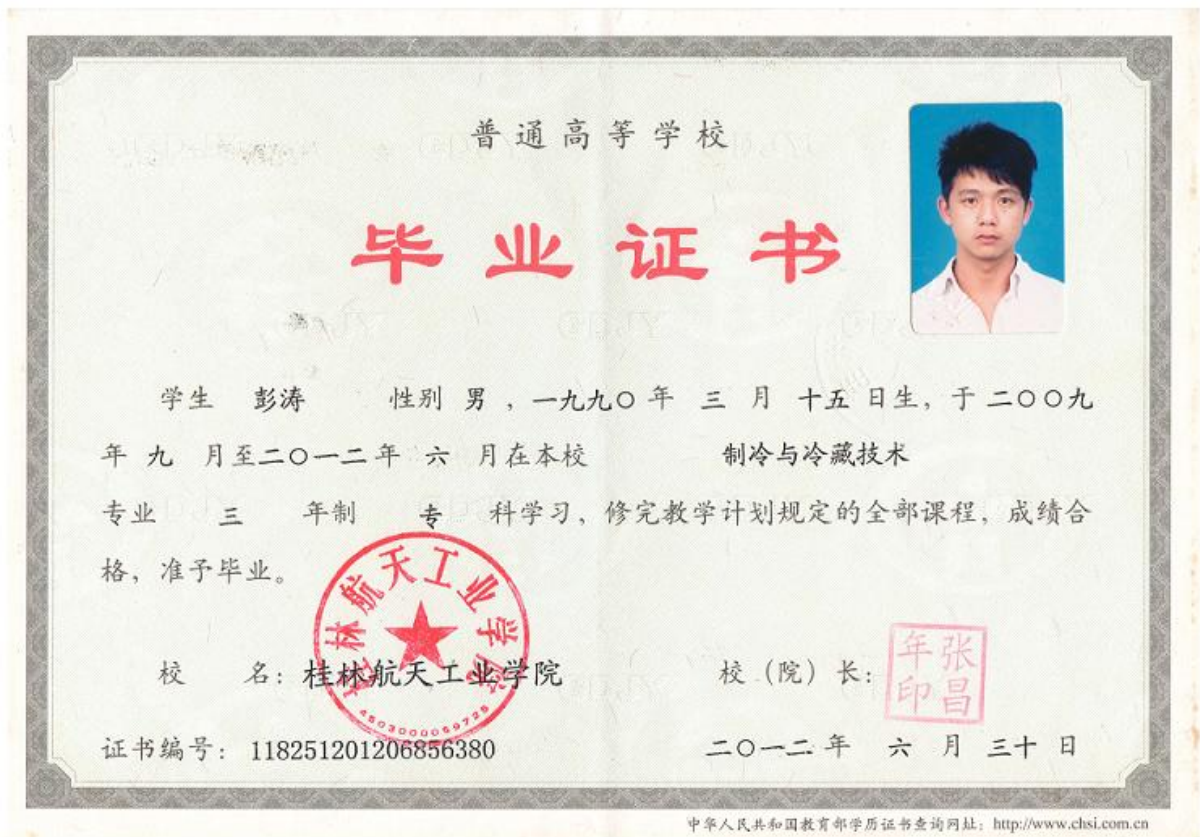 普通高等学校
毕业证书
学生 彭涛 性别 男 ，一九九〇 年 三 月 十五 日生，于 二〇〇九
年 九 月至二〇一二年 六 月在本校 制冷与冷藏技术
专业 三 年制 专 科学习，修完教学计划规定的全部课程，成绩合
格，准予毕业。
桂林航天工业学院
4503000069725
校 名：桂林航天工业学院
校（院）长：
张昌年印
证书编号：118251201206856380
二〇一二 年 六 月 三十 日
中华人民共和国教育部学历证书查询网址：http://www.chsi.com.cn